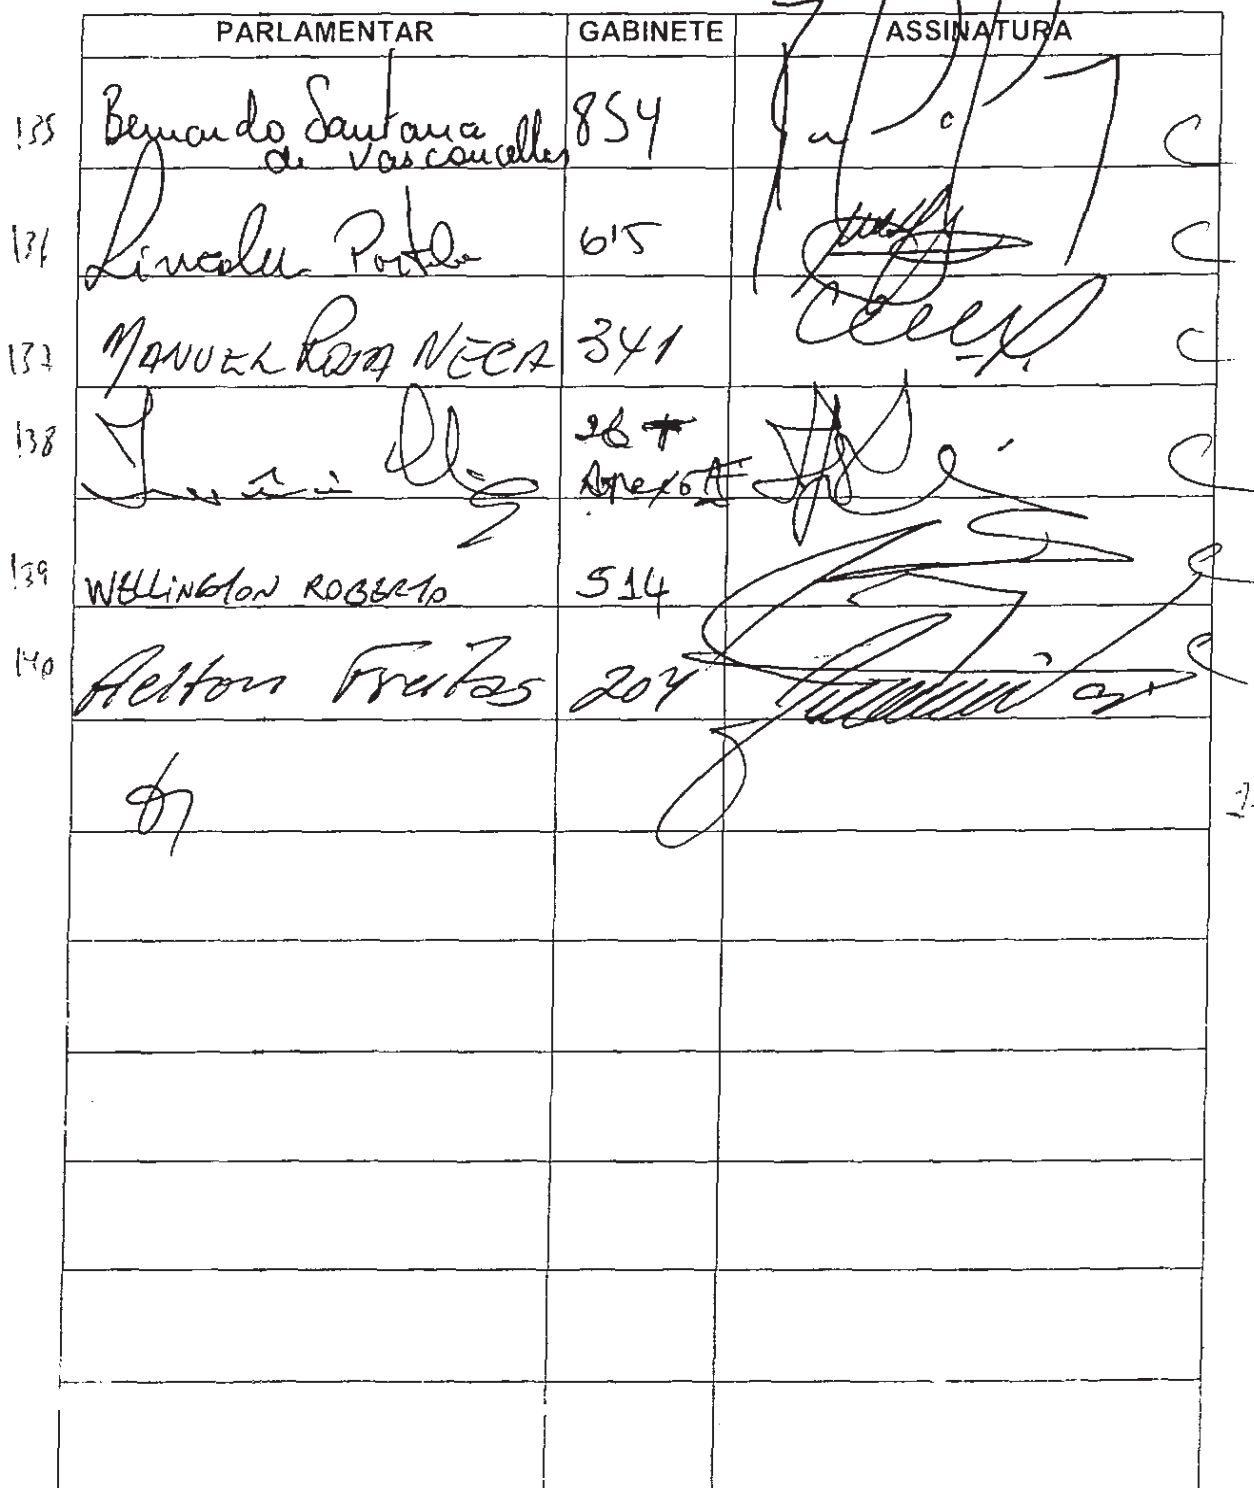 PARLAMENTAR GABINETE ASSINATURA
135 Bernardo Santana 854
de Vasconcellos
136 Lincoln Portela 615
137 MANUEL ROSA NECA 341
138
Anexo II
139 WELLINGTON ROBERTO 514
140 Aelton Freitas 204